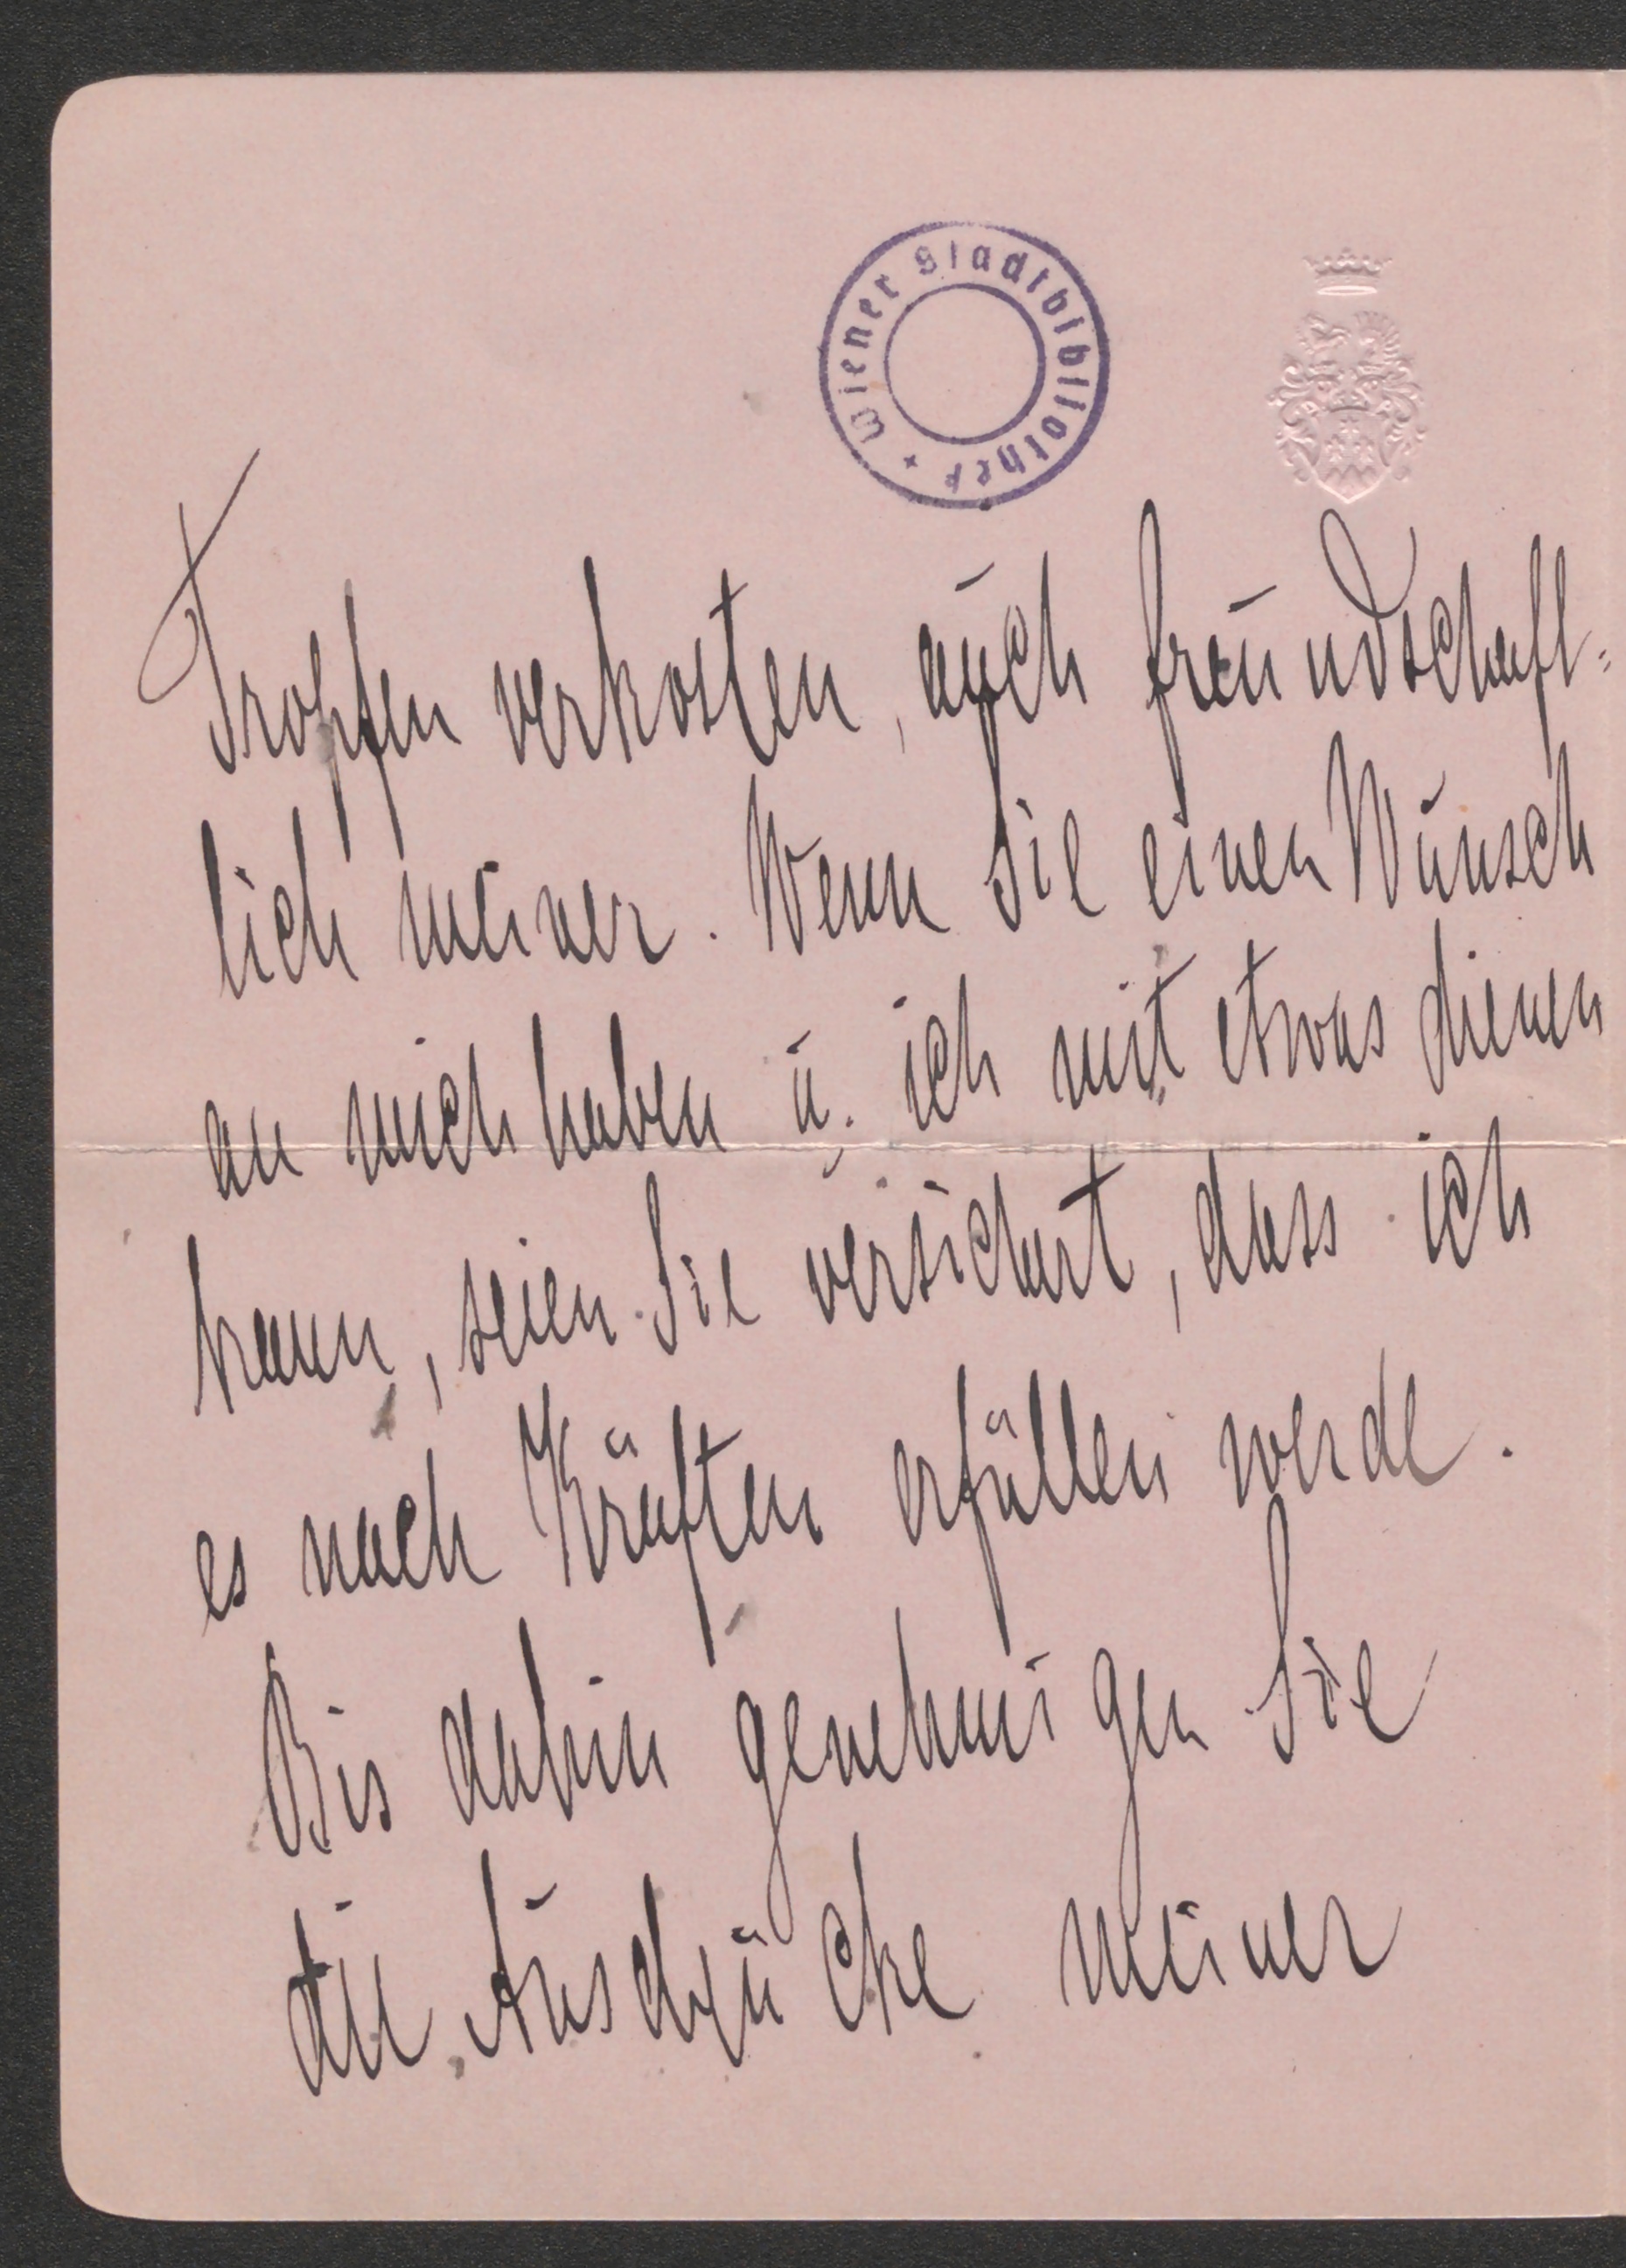 Wiener Stadtbibliothek
Tropfen verkosten, auch freundschaft=
lich meiner. Wenn Sie einen Wunsch
an mich haben u. ich mit etwas dienen
kann, seien Sie versichert, dass ich
es nach Kräften erfüllen werde.
Bis dahin genehmigen Sie
die Ausdrücke meiner